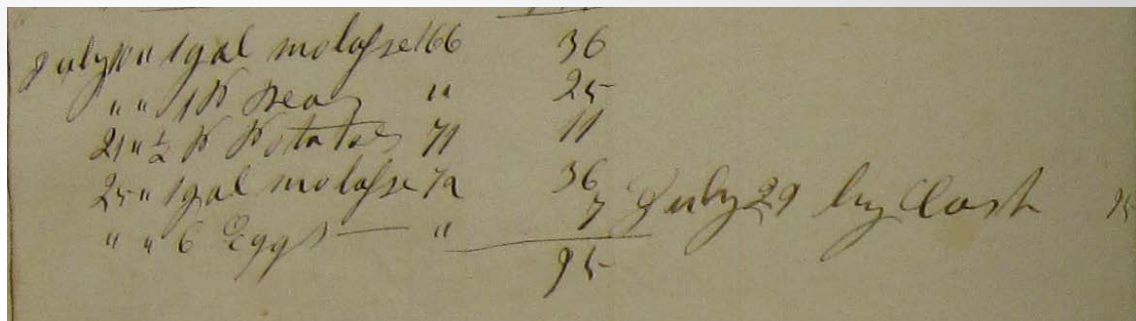 July 10 " 1 gal molaſse 166 36
" " 1 P Peas " 25
21 " ½ P Potatoes 71 11
25 " 1 gal molaſse 72 36
" " 6 Eggs — " 7 July 29 by Cash
95